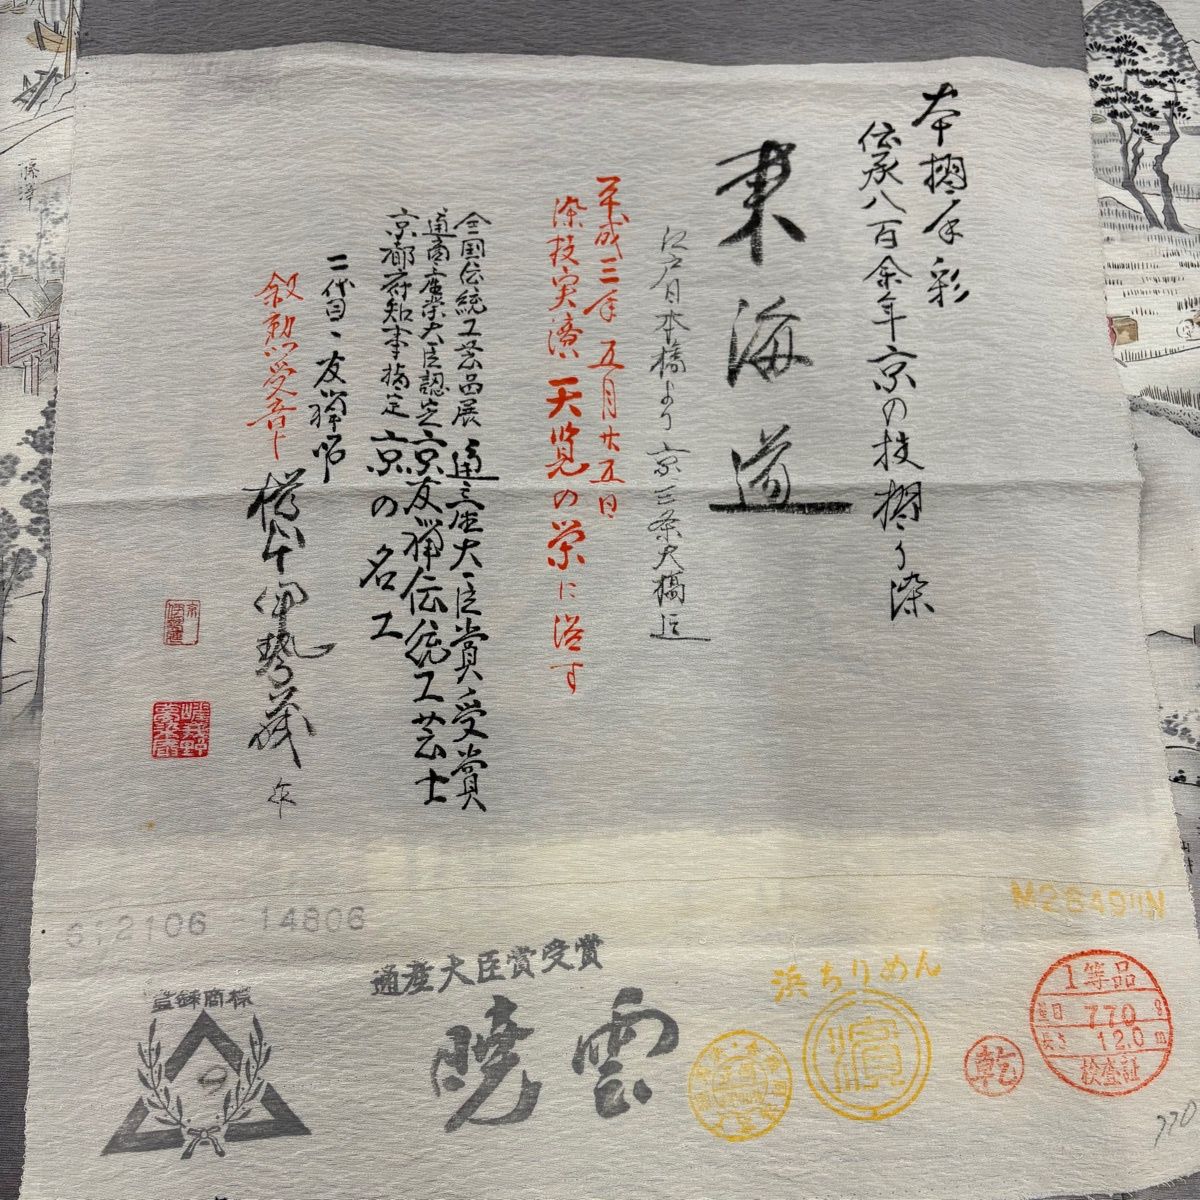 本摺手彩
伝承八百余年京の技摺り染
東海道
江戸日本橋より京三条大橋迄
平成三年五月廿五日
染技実演天覧の栄に浴す
全国伝統工芸品展 通産大臣賞受賞
通商産業大臣認定京友禅伝統工芸士
京都府知事指定京の名工
二代目、友禅師
叙勲受章
伊勢蔵 作
藤澤
612106 -14806
登録商標
9
通産大臣賞受賞
暁雲
浜ちりめん
濱
乾
1等品
量目 770 g
長さ 12.0 m
検査証
770